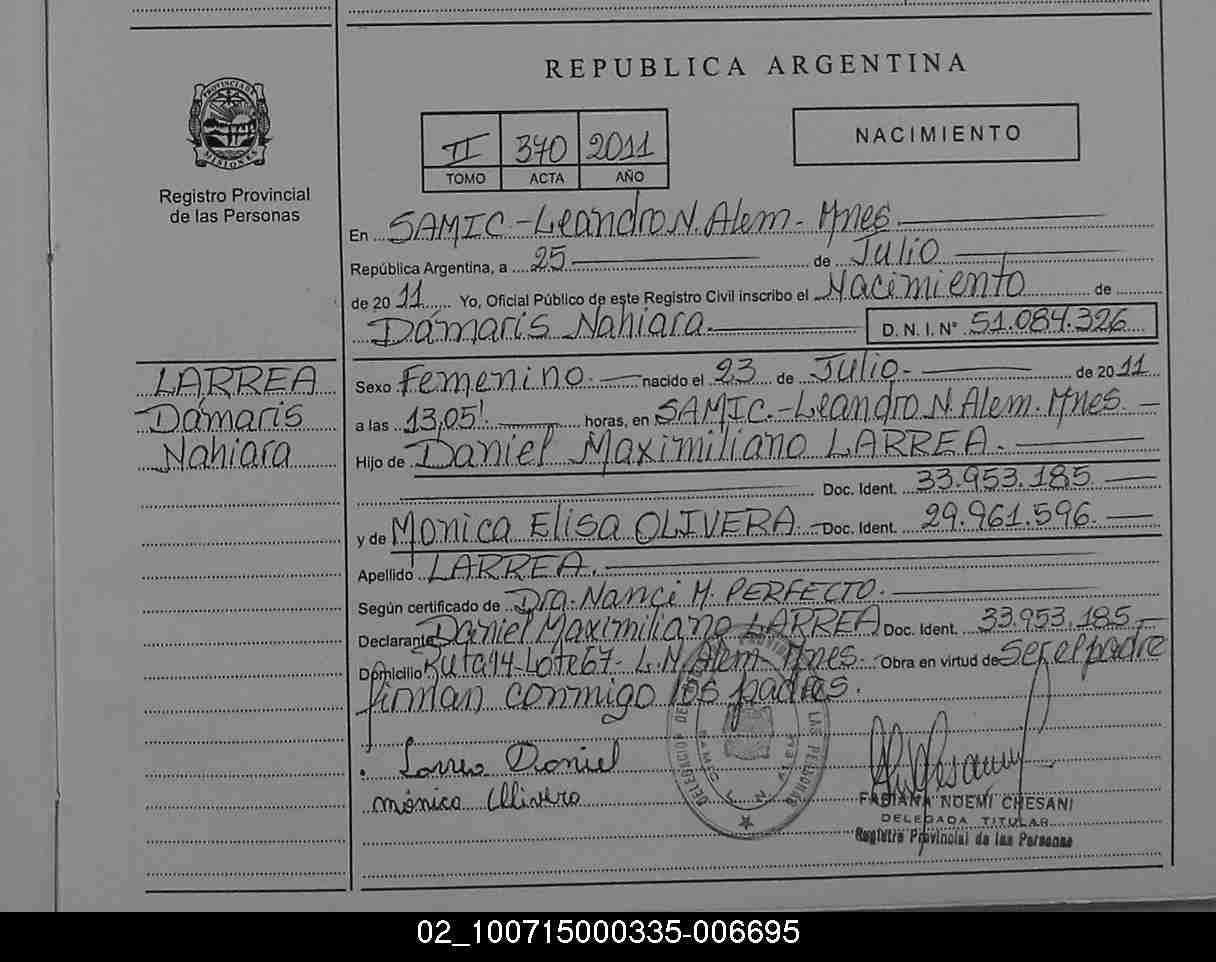 REPUBLICA ARGENTINA
PROVINCIA DE
MISIONES
Registro Provincial
de las Personas
II 370 2011
TOMO ACTA AÑO
NACIMIENTO
En SAMIC.-Leandro N. Alem.- Mnes.
República Argentina, a 25 de Julio
de 2011 Yo, Oficial Público de este Registro Civil inscribo el Nacimiento de
Dámaris Nahiara. D. N. I. N° 51.084.326
LARREA
Dámaris
Nahiara
Sexo Femenino.- nacido el 23 de Julio.- de 2011
a las 13,05'. horas, en SAMIC.-Leandro N. Alem. Mnes.
Hijo de Daniel Maximiliano LARREA.
Doc. Ident. 33.953.185
y de Monica Elisa OLIVERA.- Doc. Ident. 29.961.596.
Apellido LARREA.
Según certificado de Dra. Nanci M. PERFECTO.
Declarante Daniel Maximiliano LARREA Doc. Ident. 33.953.185
Domicilio Ruta 14-Lote 67- L.N. Alem- Mnes.- Obra en virtud de Ser el padre
firman conmigo los padres.
Larrea Daniel
mónica Olivera
DELEGACION DE LAS PERSONAS
SAMIC L N ALEM
FABIANA NOEMI CHESANI
DELEGADA TITULAR
Registro Provincial de las Personas
02_100715000335-006695